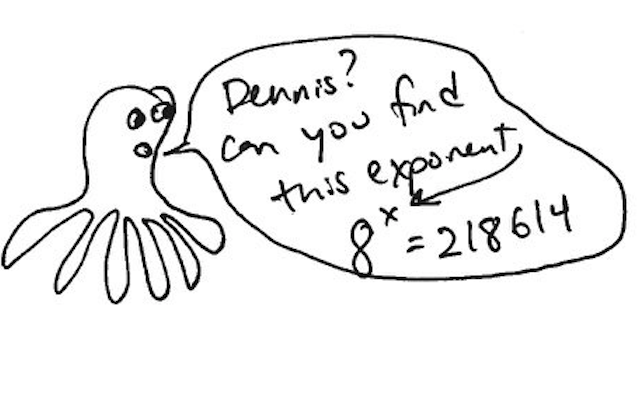 Dennis?
can you find
this exponent
8ˣ = 218614